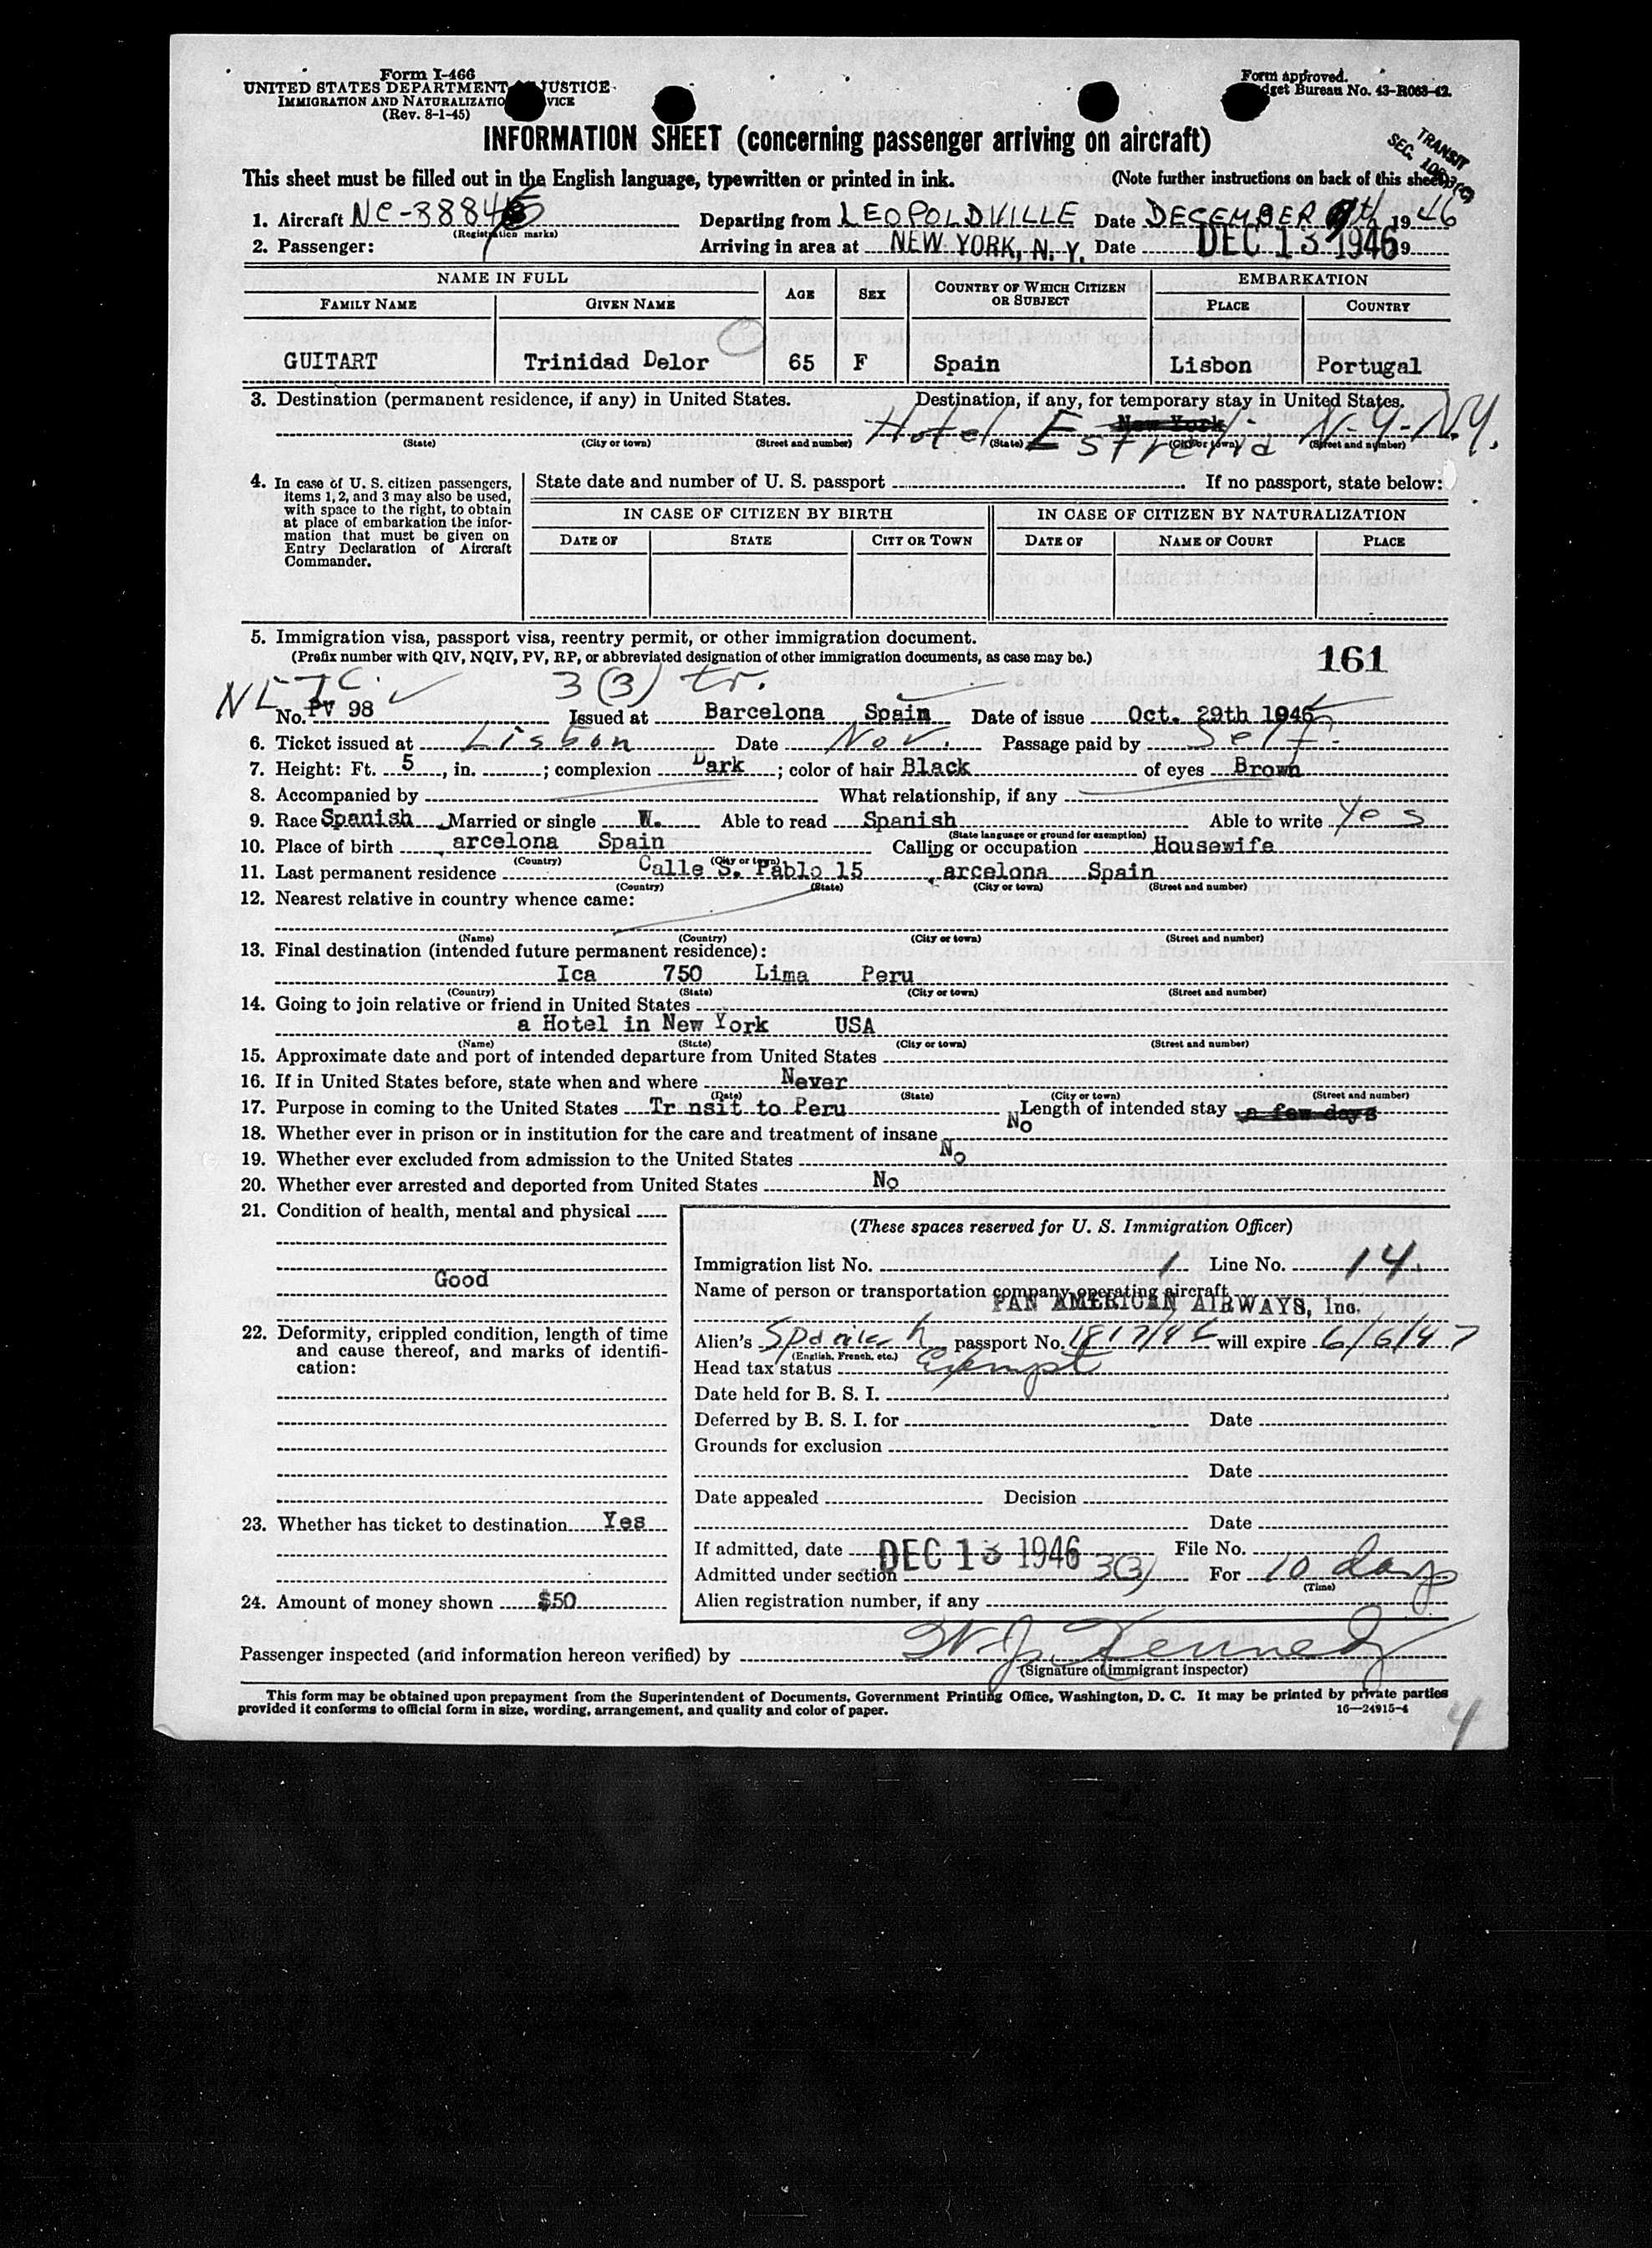 Form I-466
UNITED STATES DEPARTMENT JUSTICE
IMMIGRATION AND NATURALIZATIO VICE
(Rev. 8-1-45)
Form approved.
dget Bureau No. 43-R063-42.
INFORMATION SHEET (concerning passenger arriving on aircraft)
TRANSIT
SEC.
This sheet must be filled out in the English language, typewritten or printed in ink. (Note further instructions on back of this sheet)
1. Aircraft Departing from LEOPOLDVILLE Date DECEMBER 1946
(Registration marks)
2. Passenger: Arriving in area at NEW YORK, N. Y. Date DEC 13 1946 9
NAME IN FULL AGE SEX COUNTRY OF WHICH CITIZEN OR SUBJECT EMBARKATION
FAMILY NAME GIVEN NAME PLACE COUNTRY
GUITART Trinidad Delor 65 F Spain Lisbon Portugal
3. Destination (permanent residence, if any) in United States. Destination, if any, for temporary stay in United States.
New York
Hotel Estrella N.Y. N.Y.
(State) (City or town) (Street and number) (State) (City or town) (Street and number)
4. In case of U. S. citizen passengers, items 1, 2, and 3 may also be used, with space to the right, to obtain at place of embarkation the information that must be given on Entry Declaration of Aircraft Commander.
State date and number of U. S. passport If no passport, state below:
IN CASE OF CITIZEN BY BIRTH IN CASE OF CITIZEN BY NATURALIZATION
DATE OF STATE CITY OR TOWN DATE OF NAME OF COURT PLACE
5. Immigration visa, passport visa, reentry permit, or other immigration document.
(Prefix number with QIV, NQIV, PV, RP, or abbreviated designation of other immigration documents, as case may be.) 161
3(3) tr.
No. PV 98 Issued at Barcelona Spain Date of issue Oct. 29th 1946
6. Ticket issued at Lisbon Date Nov. Passage paid by Self.
7. Height: Ft. 5, in. ; complexion Dark ; color of hair Black of eyes Brown
8. Accompanied by What relationship, if any
9. Race Spanish Married or single W. Able to read Spanish Able to write Yes
(State language or ground for exemption)
10. Place of birth arcelona Spain Calling or occupation Housewife
(Country) (City or town)
11. Last permanent residence Calle S. Pablo 15 arcelona Spain
(Country) (State) (City or town) (Street and number)
12. Nearest relative in country whence came:
(Name) (Country) (City or town) (Street and number)
13. Final destination (intended future permanent residence):
Ica 750 Lima Peru
(Country) (State) (City or town) (Street and number)
14. Going to join relative or friend in United States
a Hotel in New York USA
(Name) (State) (City or town) (Street and number)
15. Approximate date and port of intended departure from United States
16. If in United States before, state when and where Never
(Date) (State) (City or town) (Street and number)
17. Purpose in coming to the United States Tr nsit to Peru Length of intended stay a few days
18. Whether ever in prison or in institution for the care and treatment of insane No
19. Whether ever excluded from admission to the United States No
20. Whether ever arrested and deported from United States No
21. Condition of health, mental and physical
Good
22. Deformity, crippled condition, length of time and cause thereof, and marks of identification:
23. Whether has ticket to destination Yes
24. Amount of money shown $50
(These spaces reserved for U. S. Immigration Officer)
Immigration list No. 1 Line No. 14
Name of person or transportation company operating aircraft
PAN AMERICAN AIRWAYS, Inc.
Alien's Spanish passport No. will expire 6/6/47
(English, French, etc.)
Head tax status Exempt
Date held for B. S. I.
Deferred by B. S. I. for Date
Grounds for exclusion
Date
Date appealed Decision
Date
If admitted, date DEC 13 1946 File No.
Admitted under section 3(3) For 10 days
(Time)
Alien registration number, if any
Passenger inspected (and information hereon verified) by W. J. Kennedy
(Signature of immigrant inspector)
This form may be obtained upon prepayment from the Superintendent of Documents, Government Printing Office, Washington, D. C. It may be printed by private parties
provided it conforms to official form in size, wording, arrangement, and quality and color of paper. 16—24915-4
4